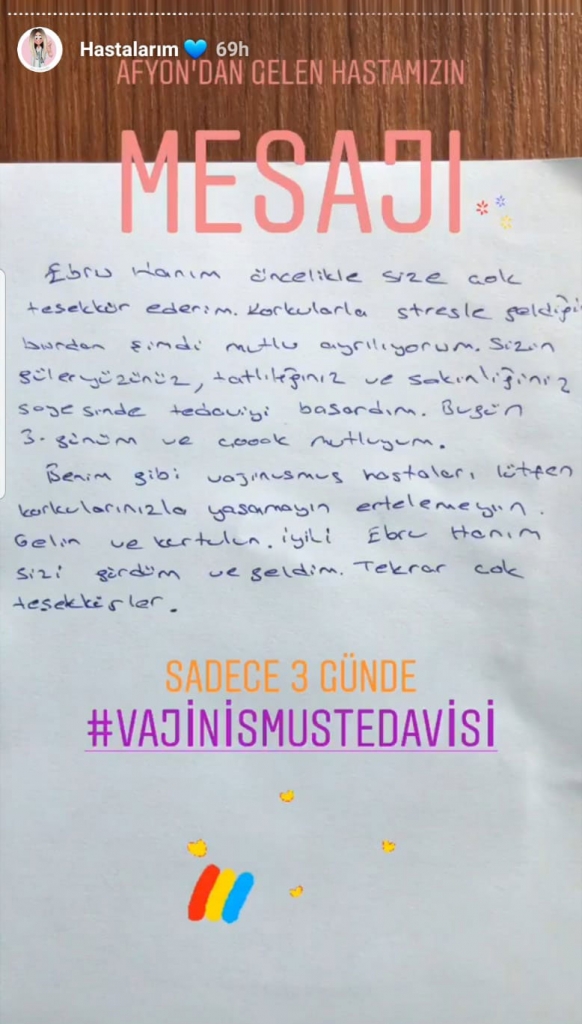 Hastalarım 💙 69h
AFYON'DAN GELEN HASTAMIZIN
MESAJI
Ebru Hanım öncelikle size çok
teşekkür ederim. Korkularla stresle geldiği
burdan şimdi mutlu ayrılıyorum. Sizin
güleryüzünüz, tatlılığınız ve sakinliğiniz
saye sinde tedaviyi başardım. Bugün
3. günüm ve çooook mutluyum.
Benim gibi vajinusmus hastaları lütfen
korkularınızla yaşamayın ertelemeyin.
Gelin ve kurtulun. iyiki Ebru Hanım
sizi gördüm ve geldim. Tekrar çok
teşekkürler.
SADECE 3 GÜNDE
#VAJİNİSMUSTEDAVİSİ